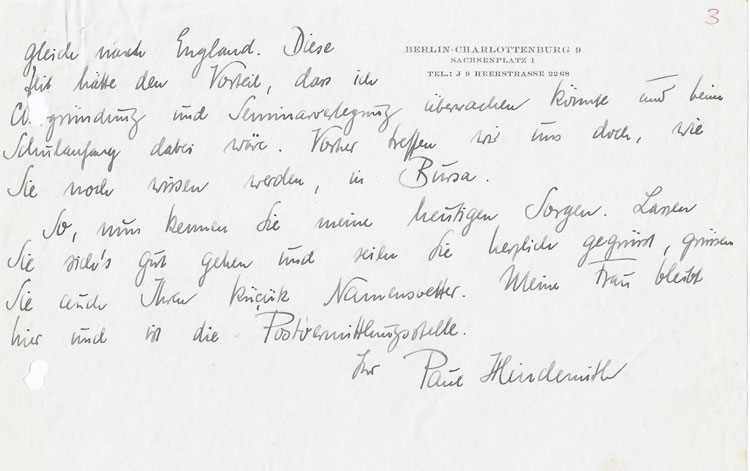 3
BERLIN-CHARLOTTENBURG 9
SACHSENPLATZ 1
TEL.: J 9 HEERSTRASSE 2268
gleich nach England. Diese
Zeit hätte den Vorteil, dass ich
gründung und Seminarverlegung überwachen könnte und beim
Schulanfang dabei wäre. Vorher treffen wir uns doch, wie
Sie noch wissen werden, in Bursa.
So, nun kennen Sie meine heutigen Sorgen. Lassen
Sie sich's gut gehen und seien Sie herzlich gegrüsst, grüssen
Sie auch Ihren küçük Namensvetter. Meine Frau bleibt
hier und ist die Postvermittlungsstelle.
Ihr Paul Hindemith